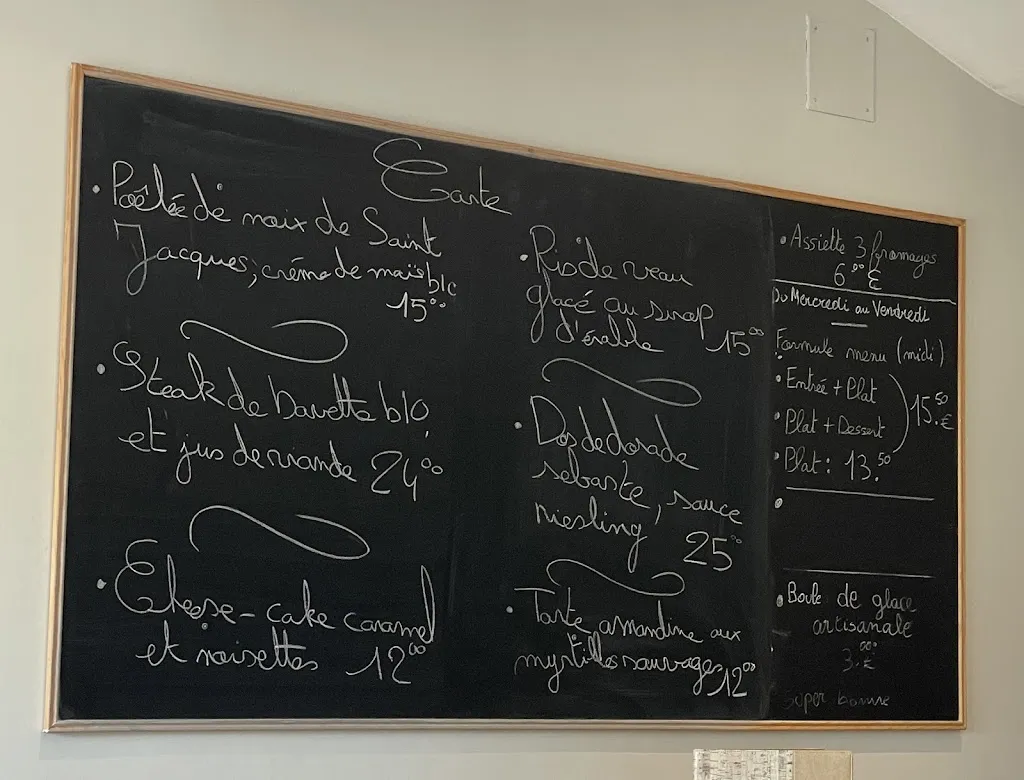 Carte
• Poêlée de noix de Saint
Jacques, crème de maïs blc
15°°
• Steak de bavette blc,
et jus de viande 24°°
• Cheese-cake caramel
et noisettes 12°°
• Ris de veau
glacé au sirop
d'érable 15°°
• Dos de dorade
sébaste, sauce
riesling 25°°
• Tarte amandine aux
myrtilles sauvages 12°°
• Assiette 3 fromages
6.°° €
Du Mercredi au Vendredi
Formule menu (midi)
• Entrée + Plat
15.50 €
• Plat + Dessert
• Plat : 13.50
• Boule de glace
artisanale
3.°° €
super bonne